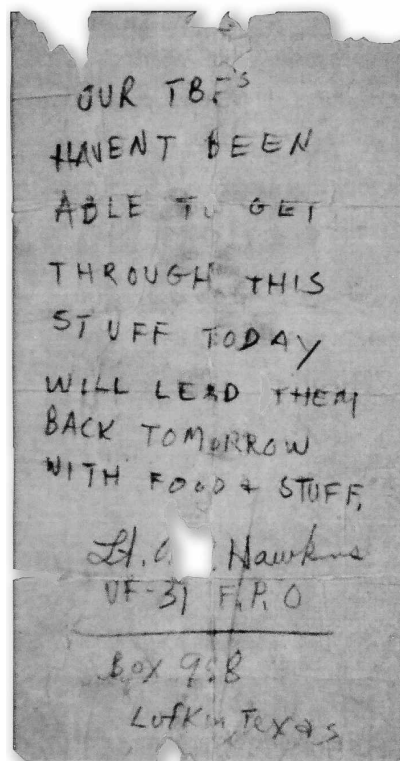 OUR TBF's
HAVENT BEEN
ABLE TO GET
THROUGH THIS
STUFF TODAY
WILL LEAD THEM
BACK TOMORROW
WITH FOOD & STUFF.
Lt. Hawkins
VF-31 F.P.O
Box 958
Lufkin, Texas